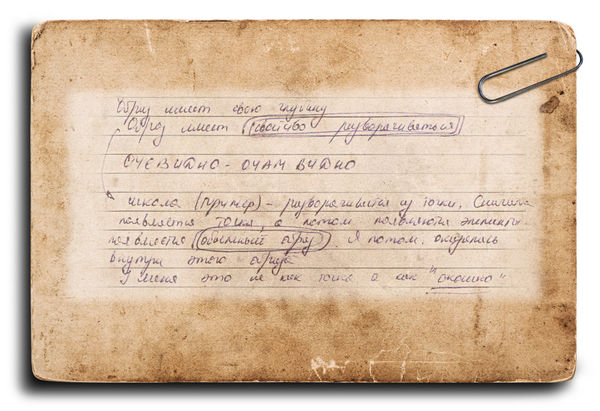 Образ имеет свою глубину
Образ имеет свойство разворачиваться
ОЧЕВИДНО - ОЧАМ ВИДНО
школа (пример) - разворачивается из точки. Сначала
появляется точка, а потом появляются элементы
появляется объемный образ. Я потом, оказалась
внутри этого образа
У меня это не как точка а как "окошко"